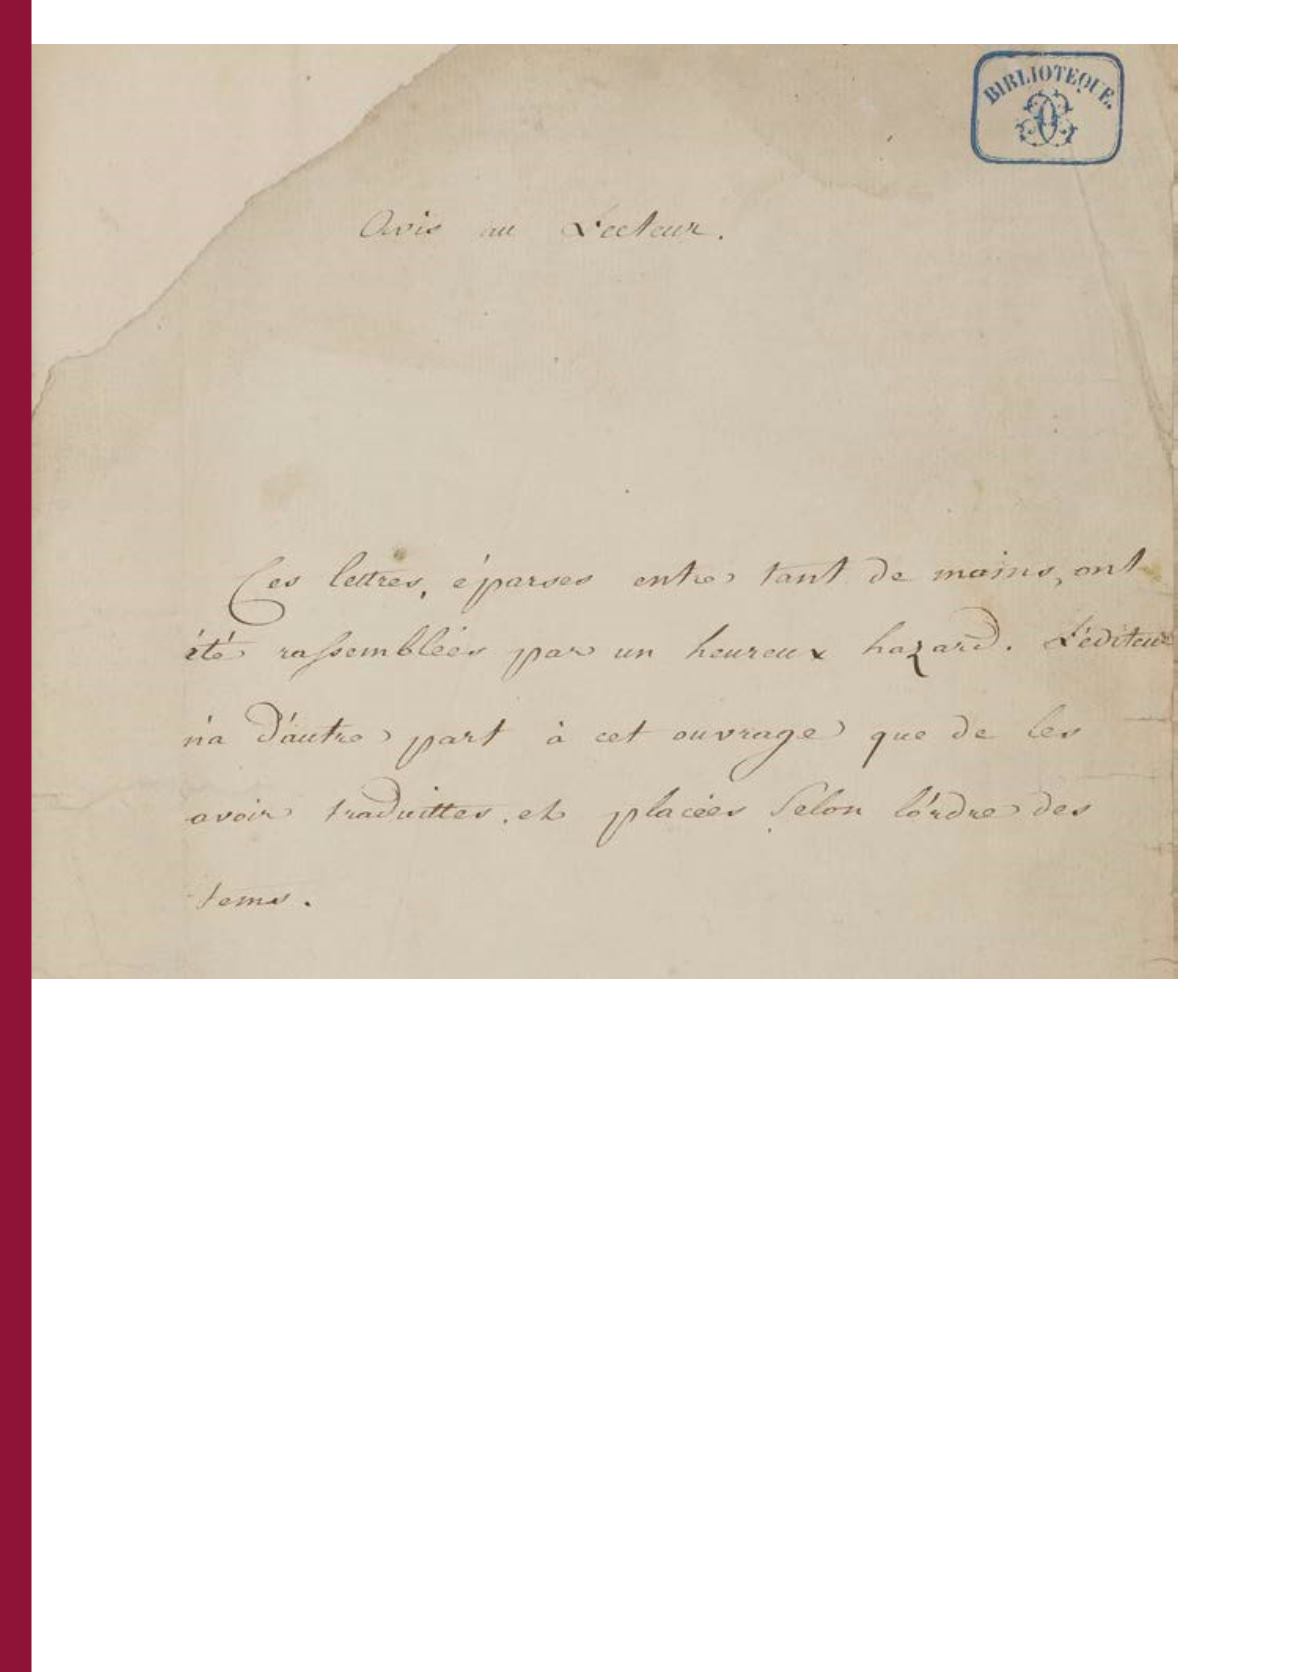 BIBLIOTEQUE.
Avis au Lecteur.
Ces lettres, éparses entre tant de mains, ont
été rassemblées par un heureux hazard. L'éditeur
n'a d'autre part à cet ouvrage que de les
avoir traduittes, et placées selon l'ordre des
tems.